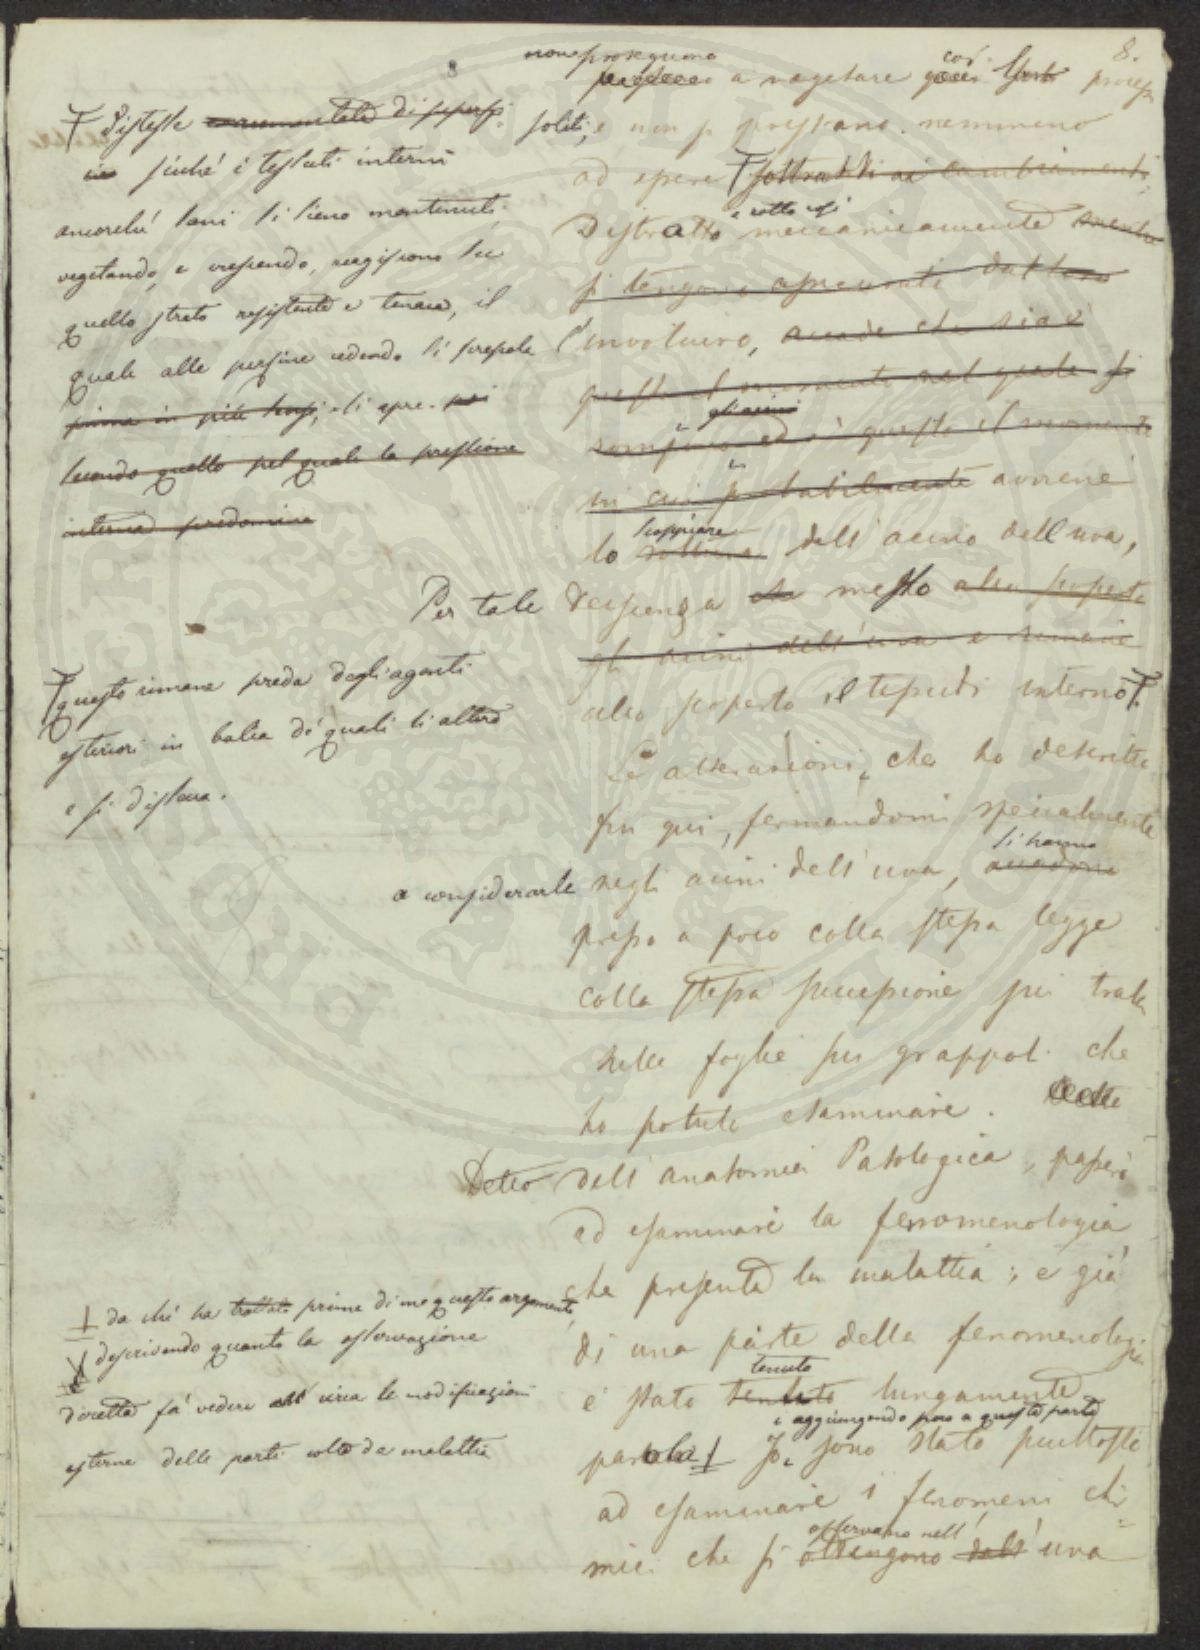 8
8.
non proseguono
a vegetare così
soliti, e non si prestano nemmeno
ad essere Ŧ sottratti ai cambiamenti
e rotto così
Distratto meccanicamente mentre
si tengono
l'involucro, accade che sia è
questo il momento nel quale si
gli acini
rompono ed è questo il momento
in cui probabilmente avviene
scoppiare
lo dell'acino dell'uva,
Per tale deiscenza messo allo scoperto
gli acini dell'uva e rimane
allo scoperto il tessuti interno Ŧ.
Le alterazioni, che ho descritte
fin qui, fermandomi specialmente
si hanno
a considerarle negli acini dell'uva, accadono
presso a poco colla stessa legge
colla stessa successione sui tralci
nelle foglie sui grappoli che
ho potuto esaminare.
Detto dell'anatomia Patologica, passerò
ad esaminare la fenomenologia
che presenta la malattia; e già
di una parte della fenomenologia
tenuto
è stato tenuto lungamente
e aggiungendo poco a questa parte
parola Io sono stato piuttosto
ad esaminare i fenomeni chi-
osservano nell'
mici che si ottengono dall'uva
Ŧ Distesse di superfi-
cie sicché i tessuti interni
ancorché sani si sieno mantenuti
vegetando, e crescendo, reagiscono su
quello strato resistente e tenace, il
quale alla perfine cedendo si screpola
prima in più luoghi, si apre poi
secondo quello pel quale la pressione
interna predomina
Ŧ questo rimane preda degli agenti
esteriori in balia di quali si altera
e si dissecca.
da chi ha trattato prima di me questo argomento,
descrivendo quanto la osservazione
diretta fa vedere circa le modificazioni
esterne delle parti colte da malattia